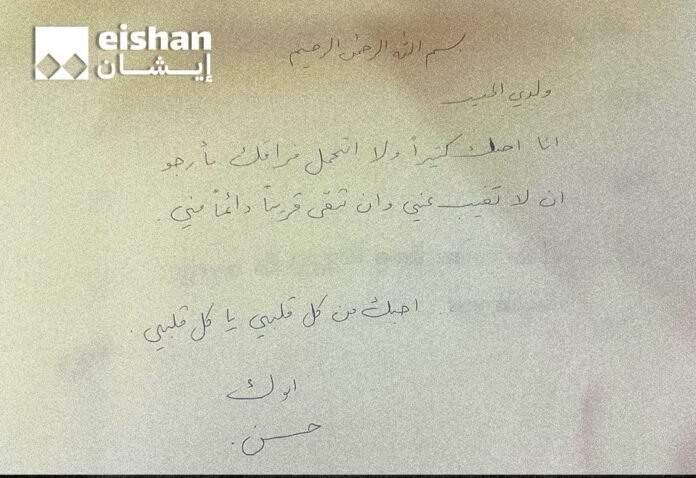 eishan
إيشان
بسم الله الرحمن الرحيم
ولدي الحبيب
انا احبك كثيراً ولا اتحمل فراقك فأرجو
ان لا تغيب عني وان تبقى قريباً دائماً مني.
احبك من كل قلبي يا كل قلبي.
ابوك
حسن.